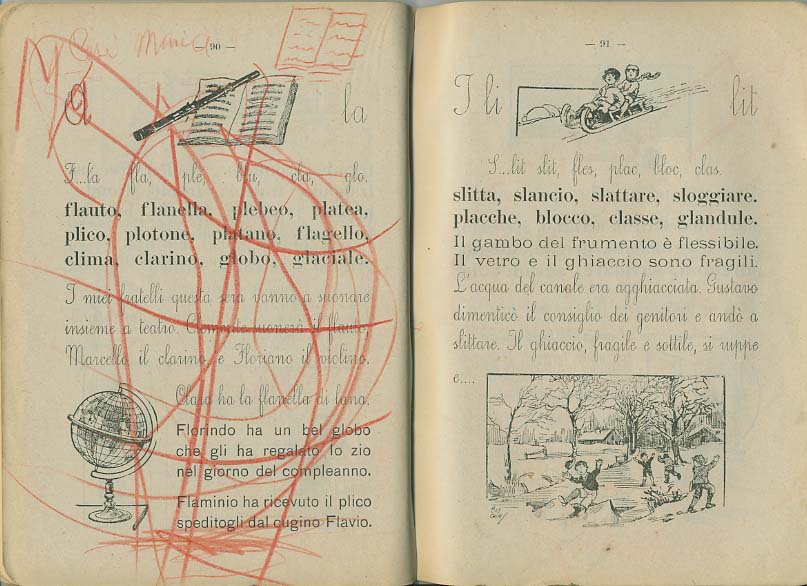 — 90 —
la
F...la fla, ple, blu, cla, glo.
flauto, flanella, plebeo, platea,
plico, plotone, platano, flagello,
clima, clarino, globo, glaciale.
I miei fratelli questa sera vanno a suonare
insieme a teatro. Clemente suonerà il flauto,
Marcello il clarino, e Floriano il violino.
Clara ha la flanella di lana.
Florindo ha un bel globo
che gli ha regalato lo zio
nel giorno del compleanno.
Flaminio ha ricevuto il plico
speditogli dal cugino Flavio.
— 91 —
I li lit
S...lit slit, fles, plac, bloc, clas.
slitta, slancio, slattare, sloggiare.
placche, blocco, classe, glandule.
Il gambo del frumento è flessibile.
Il vetro e il ghiaccio sono fragili.
L'acqua del canale era agghiacciata. Gustavo
dimenticò il consiglio dei genitori e andò a
slittare. Il ghiaccio, fragile e sottile, si ruppe
e....